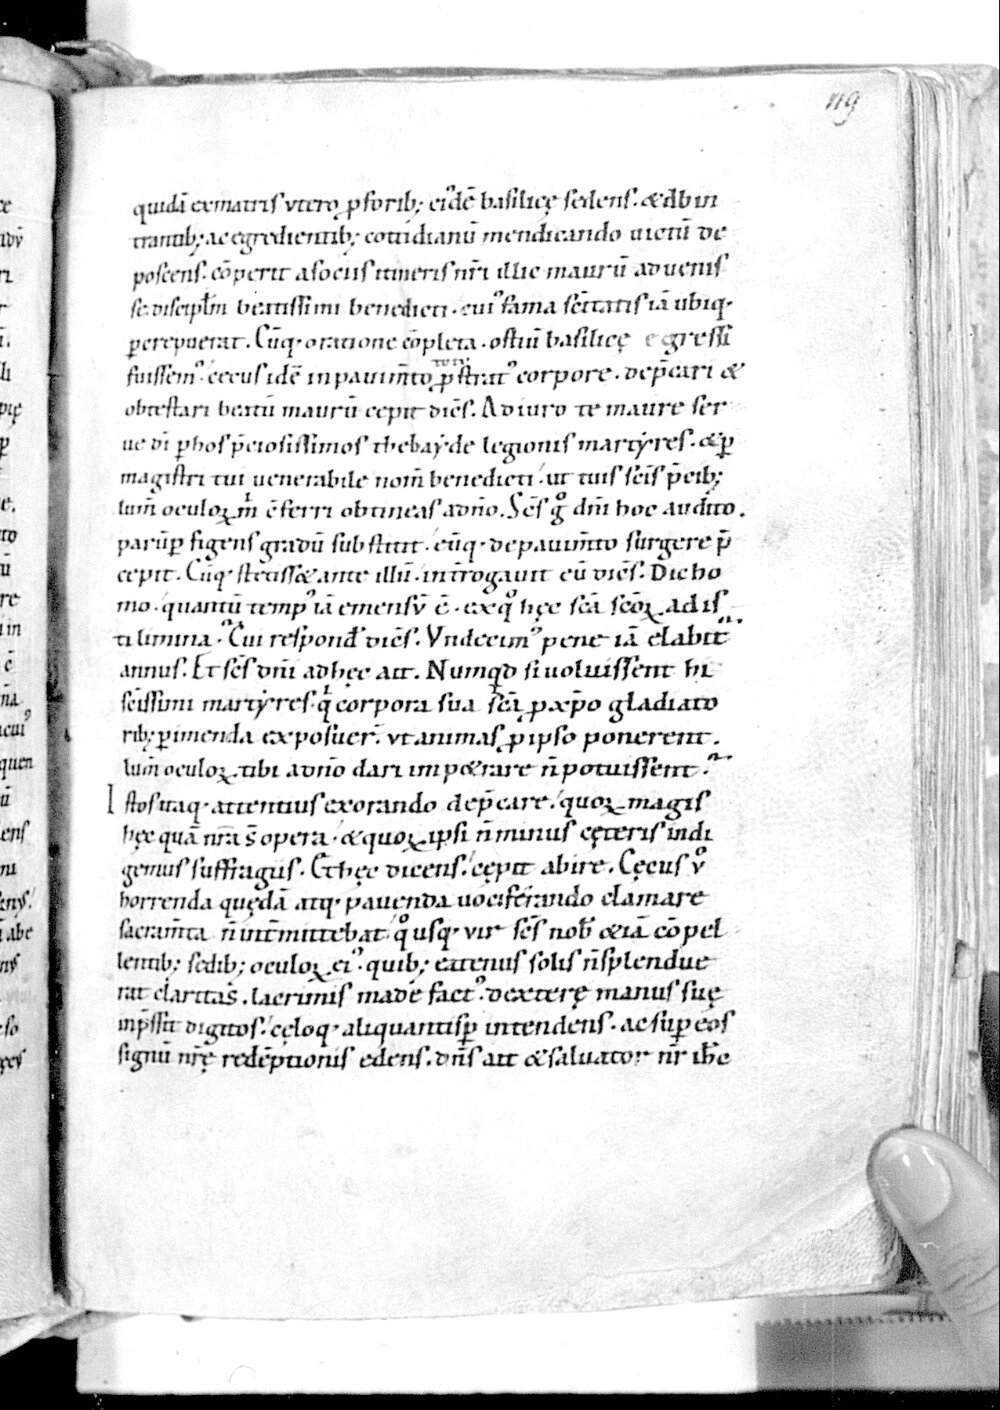 119
quidā ex matris vtero p̱ forib; ei᷒dē basilicę sedens. & ab in
trantib; ac egredientib; cottidianū mendicando uictū de
poscens. cōperit a sociis itineris nr̄i illic maurū aduenis
se. discipłm beatissimi benedicti. cui᷒ fama sc̄itatis iā ubiq·
percrepuerat. Cūq· oratione cōpleta. ostiū basilicę egressi
fuissem᷒. cecus idē in pauim̄to toto p̱strat᷒ corpore. dep̄cari &
obtestari beatū maurū cepit dicēs. Adiuro te maure ser
ue dī p̱ hos p̄ciosissimos thebaẏde legionis martẏres. & p̱
magistri tui uenerabile nom̄ benedicti. ut tuis sc̄is p̄cib;
lum̄ oculoꝝ m̍ c̄ferri obtineas a dn̄o. Sc̄s gͦ dn̄i hoc audito.
parūp̱ figens gradū substitit. eūq· de pauim̄to surgere p̄
cepit. Cūq· stetiss& ante illū. int̄rogauit eū dicēs. Dic ho
mo. quantū temp᷒ iā emensū ē. ex qͦ hęc sc̄a sc̄oꝝ adis
ti limina. Cui respond̄ dicēs. Vndecim᷒ pene iā elabit᷑
annus. Et sc̄s dn̄i ad hęc ait. Numq̇d si uoluissent hi
sc̄issimi martẏres. q̍ corpora sua sc̄a p̱ xp̄o gladiato
rib; p̱imenda exposuer̄. vt animas p̱ ipso ponerent.
lum̄ oculoꝝ tibi a dn̄o dari imp&rare n̄ potuissent.
Istos itaq· attentius exorando dep̄care. quoꝝ magis
hęc quā nr̄a s̄ opera. & quoꝝ ipsi n̄ minus cęteris indi
gemus suffragiis. Et hęc dicens. cępit abire. Cęcus v̊
horrenda quędā atq· pauenda uociferando clamare
sacram̄ta n̄ int̄mittebat. qͦusq· vir sc̄s nob̄ & iā cōpel
lentib; sedib; oculoꝝ ei᷒. quib; eatenus solis n̄ splendue
rat claritas. lacrimis made fact᷒. dexterę manus suę
inp̄ssit digitos. cęloq· aliquantisp̱ intendens. ac sup̱ eos
signū nr̄ę redēptionis edens. dn̄s ait & saluator nr̄ ih̄c